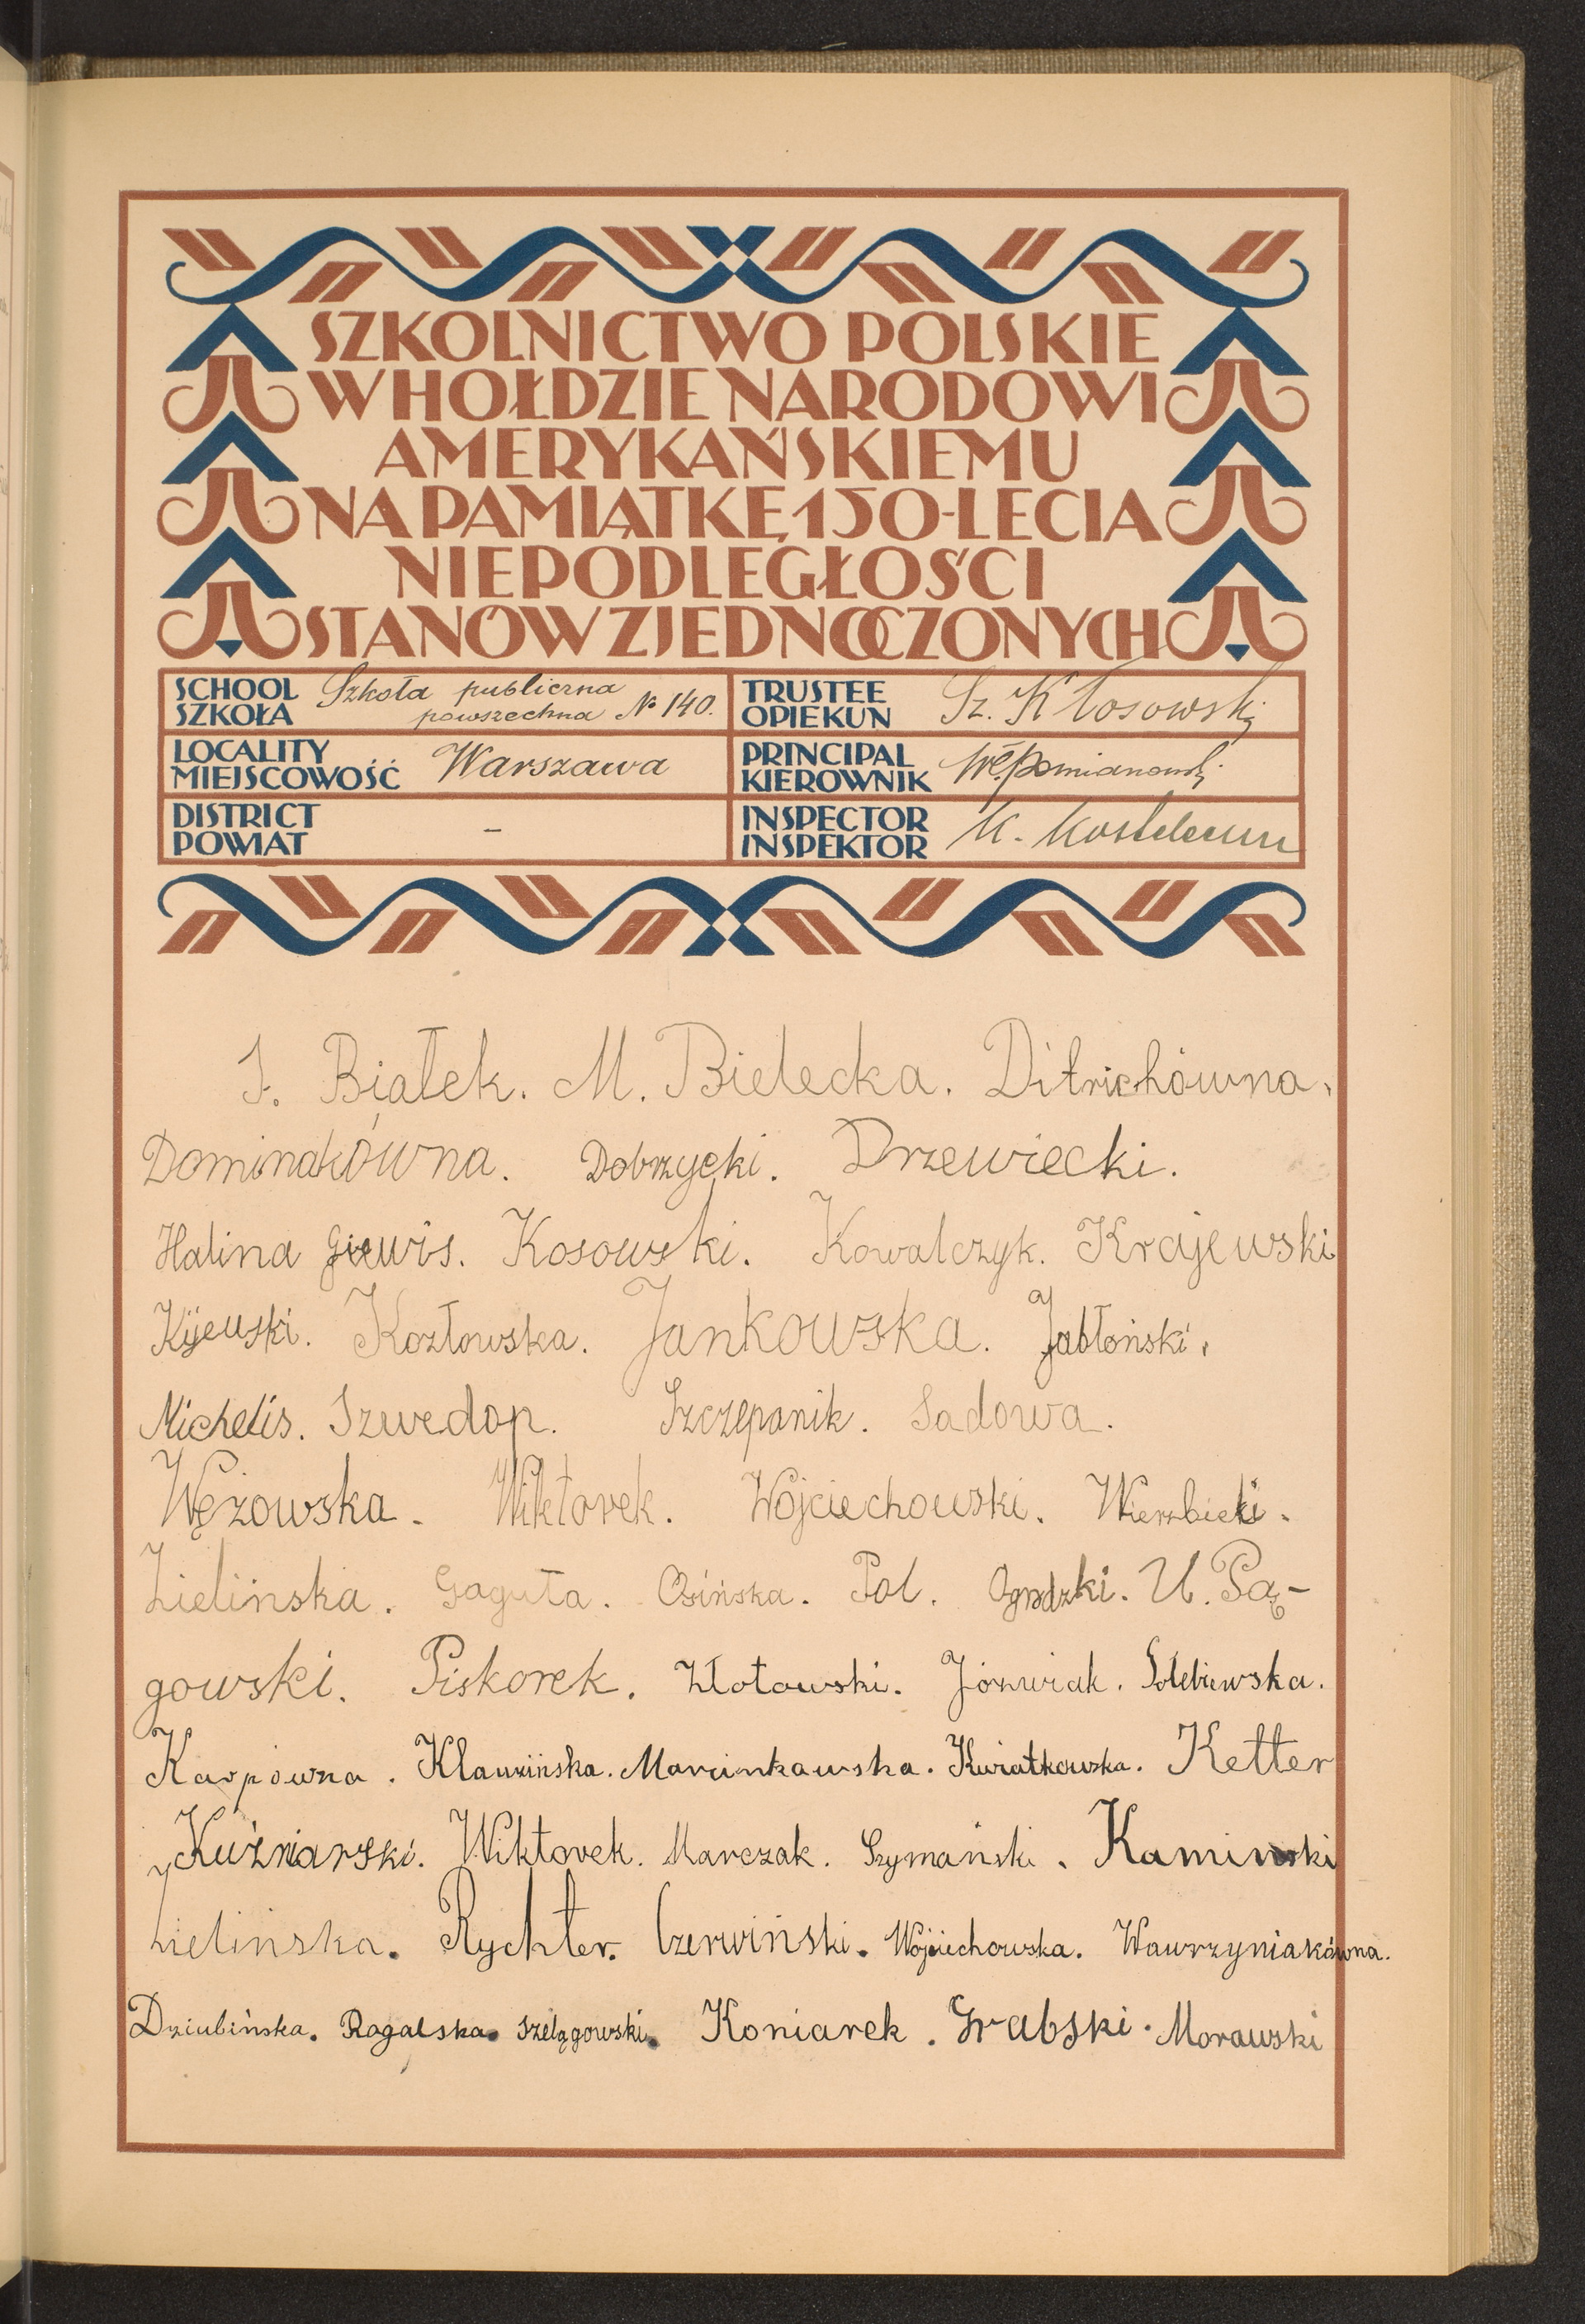 SZKOLNICTWO POLSKIE
W HOŁDZIE NARODOWI
AMERYKAŃSKIEMU
NA PAMIĄTKĘ 150-LECIA
NIEPODLEGŁOŚCI
STANÓW ZJEDNOCZONYCH
SCHOOL SZKOŁA Szkoła publiczna powszechna № 140.
TRUSTEE OPIEKUN Sz. Kłosowski
LOCALITY MIEJSCOWOŚĆ Warszawa
PRINCIPAL KIEROWNIK Wł. Pomianowski
DISTRICT POWIAT -
INSPECTOR INSPEKTOR K.
J. Białek. M. Bielecka. Ditrichówna.
Dominakówna. Dobrzycki. Drzewiecki.
Halina Giewis. Kosowski. Kowalczyk. Krajewski
Kijewski. Kozłowska. Jankowska. Jabłoński.
Michelis. Szwedop. Szczepanik. Sadowa.
Wężowska. Wiktorek. Wojciechowski. Wierzbicki.
Zielińska. Gaguła. Osińska. Pol. Ogrodzki. U. Pą-
gowski. Piskorek. Złotowski. Józwiak. Golebiewska.
Karpówna. Klauzińska. Marcinkowska. Kwiatkowska. Ketter
Kuźniarski. Wiktorek. Marczak. Szymański. Kaminski
Zielińska. Rychter. Czerwiński. Wojciechowska. Wawrzyniakówna.
Dziubińska. Rogalska. Szelągowski. Koniarek. Grabski. Morawski